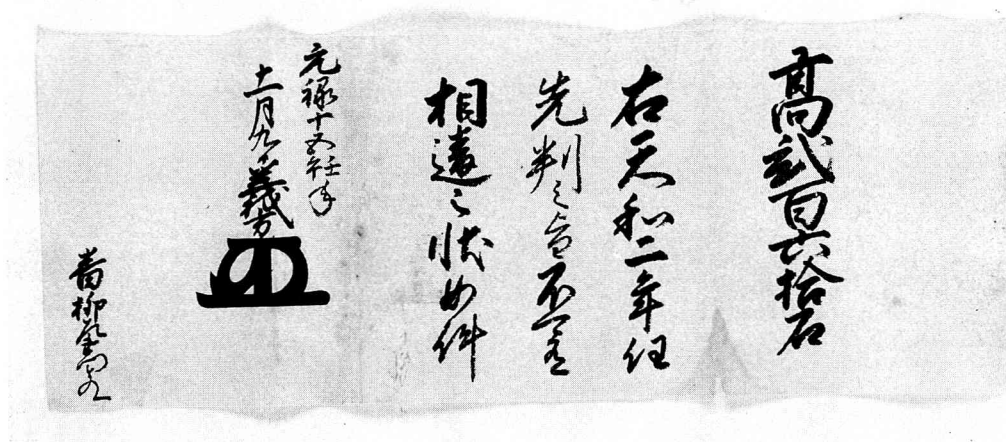 高弐百六拾石
右天和二年任
先判之旨不可有
相違之状如件
元禄十五年
十一月九日 義方
青柳